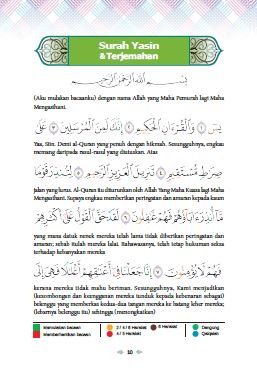 Surah Yasin
& Terjemahan
بِسْمِ اللَّهِ الرَّحْمَٰنِ الرَّحِيمِ
(Aku mulakan bacaanku) dengan nama Allah yang Maha Pemurah lagi Maha
Mengasihani.
يسٓ ١ وَالْقُرْءَانِ الْحَكِيمِ ٢ إِنَّكَ لَمِنَ الْمُرْسَلِينَ ٣ عَلَىٰ
Yaa, Siin. Demi al-Quran yang penuh dengan hikmah. Sesungguhnya, engkau
memang daripada rasul-rasul yang diutuskan. Atas
صِرَاطٍ مُّسْتَقِيمٍ ٤ تَنزِيلَ الْعَزِيزِ الرَّحِيمِ ٥ لِتُنذِرَ قَوْمًا
jalan yang lurus. Al-Quran itu diturunkan oleh Allah Yang Maha Kuasa lagi Maha
Mengasihani. Supaya engkau memberikan peringatan dan amaran kepada kaum
مَّآ أُنذِرَ ءَابَآؤُهُمْ فَهُمْ غَٰفِلُونَ ٦ لَقَدْ حَقَّ الْقَوْلُ عَلَىٰٓ أَكْثَرِهِمْ
yang mana datuk nenek mereka telah lama tidak diberikan peringatan dan
amaran; sebab itulah mereka lalai. Bahawasanya, telah tetap hukuman seksa
terhadap kebanyakan mereka
فَهُمْ لَا يُؤْمِنُونَ ٧ إِنَّا جَعَلْنَا فِىٓ أَعْنَٰقِهِمْ أَغْلَٰلًا فَهِىَ إِلَى
kerana mereka tidak mahu beriman. Sesungguhnya, Kami menjadikan
(kesombongan dan keengganan mereka tunduk kepada kebenaran sebagai)
belenggu yang memberkas kedua-dua tangan mereka ke batang leher mereka;
(lebarnya belenggu itu) sehingga (menongkatkan)
2 / 4 / 6 Harakat
6 Harakat
Dengung
4 / 5 Harakat
Qalqalah
10